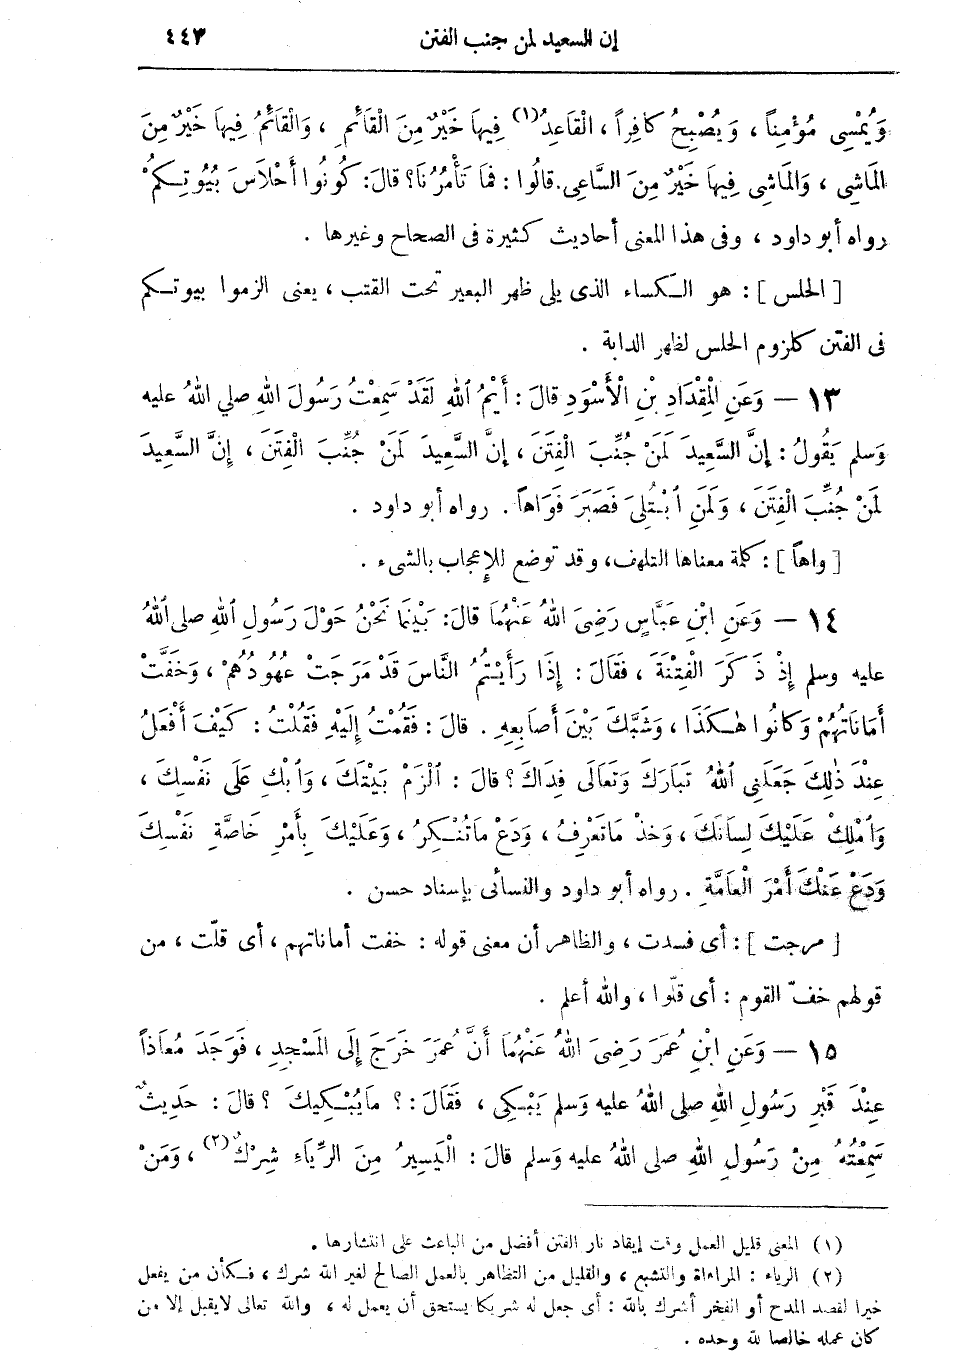 إن السعيد لمن جنب الفتن ٤٤٣
وَيُمْسِى مُؤْمِناً ، وَيُصْبِحُ كافِراً ، الْقَاعِدُ(١) فِيهَا خَيْرٌ مِنَ الْقَائِمِ ، وَالْقَائِمُ فِيهَا خَيْرٌ مِنَ
الْمَاشِى ، وَالْمَاشِى فِيهَا خَيْرٌ مِنَ السَّاعِى. قالُوا : فَمَا تَأْمُرُنَا؟ قالَ: كُونُوا أَحْلَاسَ بُيُوتِكُمْ
رواه أبو داود ، وفى هذا المعنى أحاديث كثيرة فى الصحاح وغيرها .
[ الحلس ] : هو الكساء الذى يلى ظهر البعير تحت القتب ، يعنى الزموا بيوتكم
فى الفتن كلزوم الحلس لظهر الدابة .
١٣ — وَعَنِ الْمِقْدَادِ بْنِ الْأَسْوَدِ قالَ : أَيْمُ اللهِ لَقَدْ سَمِعْتُ رَسُولَ اللهِ صلى اللهُ عليه
وَسلم يَقُولُ : إِنَّ السَّعِيدَ لَمَنْ جُنِّبَ الْفِتَنَ ، إِنَّ السَّعِيدَ لَمَنْ جُنِّبَ الْفِتَنَ ، إِنَّ السَّعِيدَ
لَمَنْ جُنِّبَ الْفِتَنَ ، وَلَمَنِ ابْتُلِىَ فَصَبَرَ فَوَاهاً . رواه أبو داود .
[ واهاً ] : كلمة معناها التلهف، وقد توضع للإعجاب بالشىء .
١٤ — وَعَنِ ابْنِ عَبَّاسٍ رَضِىَ اللهُ عَنْهُمَا قالَ: بَيْنَمَا نَحْنُ حَوْلَ رَسُولِ اللهِ صلى اللهُ
عليه وسلم إِذْ ذَكَرَ الْفِتْنَةَ ، فَقَالَ : إِذَا رَأَيْتُمُ النَّاسَ قَدْ مَرَجَتْ عُهُودُهُمْ ، وَخَفَّتْ
أَمَانَاتُهُمْ وَكَانُوا هٰكَذَا ، وَشَبَّكَ بَيْنَ أَصَابِعِهِ . قالَ : فَقُمْتُ إِلَيْهِ فَقُلْتُ : كَيْفَ أَفْعَلُ
عِنْدَ ذٰلِكَ جَعَلَنِى اللهُ تَبَارَكَ وَتَعَالَى فِدَاكَ ؟ قالَ : الْزَمْ بَيْتَكَ ، وَابْكِ عَلَى نَفْسِكَ ،
وَامْلِكْ عَلَيْكَ لِسَانَكَ ، وَخُذْ مَاتَعْرِفُ ، وَدَعْ مَاتُنْكِرُ ، وَعَلَيْكَ بِأَمْرِ خَاصَّةِ نَفْسِكَ
وَدَعْ عَنْكَ أَمْرَ الْعَامَّةِ . رواه أبو داود والنسائى بإسناد حسن .
[ مرجت ] : أى فسدت ، والظاهر أن معنى قوله : خفت أماناتهم ، أى قلّت ، من
قولهم خفّ القوم : أى قلّوا ، والله أعلم .
١٥ — وَعَنِ ابْنِ عُمَرَ رَضِىَ اللهُ عَنْهُمَا أَنَّ عُمَرَ خَرَجَ إِلَى الْمَسْجِدِ ، فَوَجَدَ مُعَاذاً
عِنْدَ قَبْرِ رَسُولِ اللهِ صلى اللهُ عليه وَسلم يَبْكِى ، فَقَالَ : ؟ مَايُبْكِيكَ ؟ قالَ : حَدِيثٌ
سَمِعْتُهُ مِنْ رَسُولِ اللهِ صلى اللهُ عليه وَسلم قالَ : الْيَسِيرُ مِنَ الرِّيَاءِ شِرْكٌ(٢) ، وَمَنْ
(١) المعنى قليل العمل وقت إيقاد نار الفتن أفضل من الباعث على انتشارها .
(٢) الرياء : المراءاة والتشبع ، والقليل من التظاهر بالعمل الصالح لغير الله شرك ، فكأن من يفعل
خيرا لقصد المدح أو الفخر أشرك بالله : أى جعل له شريكا يستحق أن يعمل له ، والله تعالى لايقبل إلا من
كان عمله خالصا لله وحده .